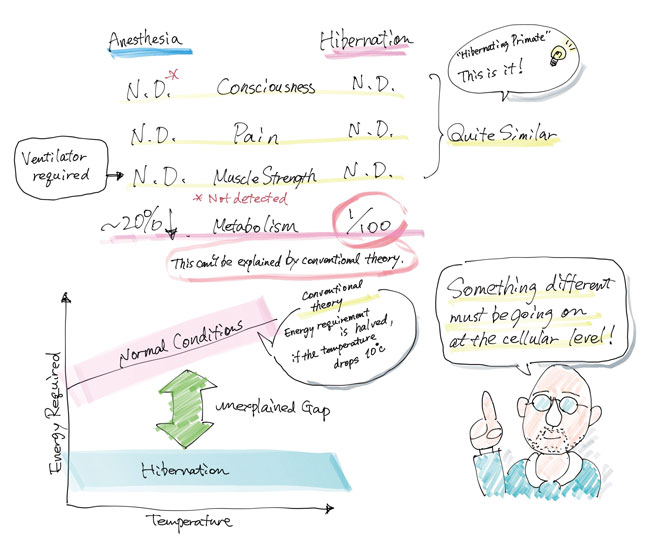 Anesthesia Hibernation
"Hibernating Primate"
This is it!
N.D.* Consciousness N.D.
N.D. Pain N.D.
Quite Similar
Ventilator
required
N.D. Muscle Strength N.D.
* Not detected
~20%↓ Metabolism 1/100
This can't be explained by conventional theory.
Conventional
theory
Energy requirement
is halved,
if the temperature
drops 10°C
Something different
must be going on
at the cellular level!
Normal Conditions
unexplained Gap
Hibernation
Energy Required
Temperature